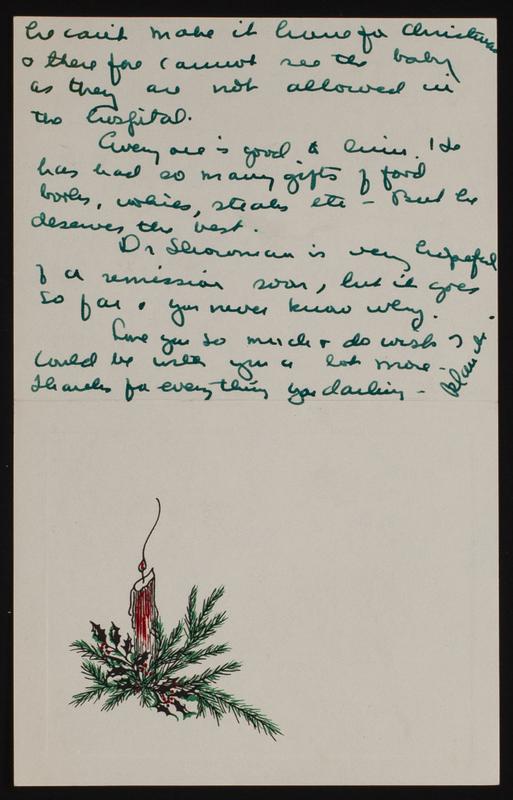 he can't make it home for Christmas
& therefore cannot see the baby
as they are not allowed in
the hospital.
Everyone is good to him. He
has had so many gifts of food
books, cookies, steaks etc - But he
deserves the best.
Dr is very hopeful
of a remission soon, but it goes
so far & you never know why.
Love you so much & do wish I
could be with you a lot more -
Thanks for everything you darling -